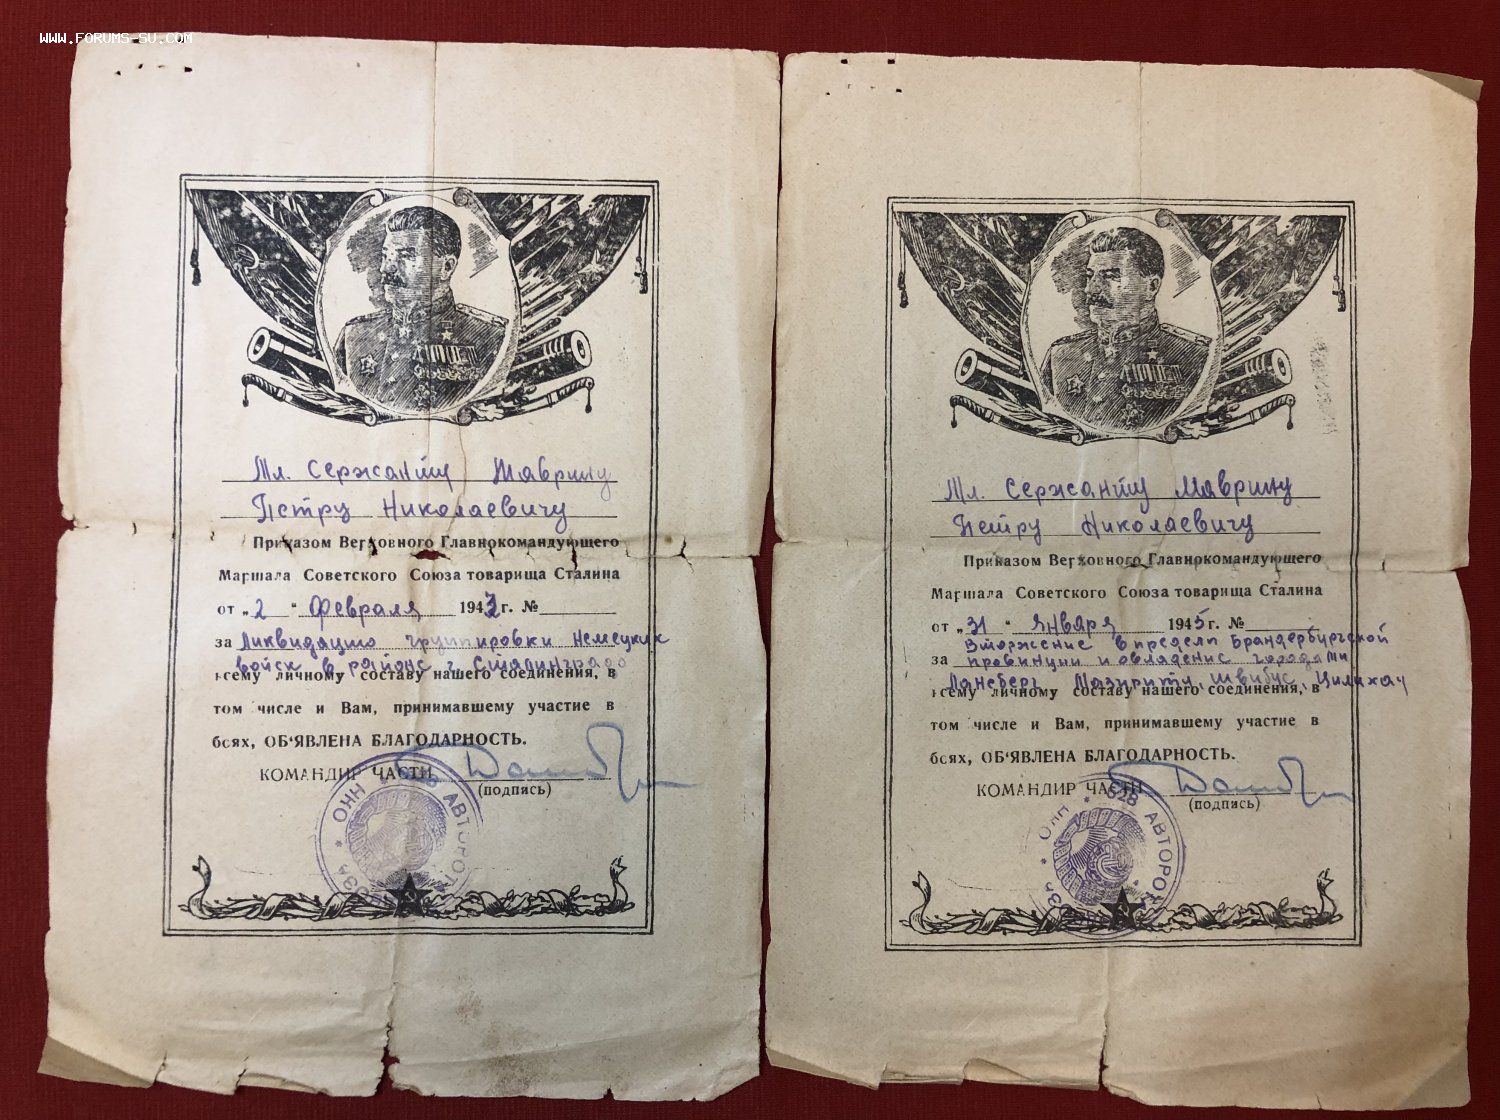 WWW.FORUMS-SU.COM
Мл. Сержанту Маврину
Петру Николаевичу
Приказом Верховного Главнокомандующего
Маршала Советского Союза товарища Сталина
от „2" Февраля 1943г. №
за Ликвидацию группировки Немецких
войск в районе г. Сталинграда
всему личному составу нашего соединения, в
том числе и Вам, принимавшему участие в
боях, ОБ'ЯВЛЕНА БЛАГОДАРНОСТЬ.
КОМАНДИР ЧАСТИ
(подпись)
АВТОРОТА
Мл. Сержанту Маврину
Петру Николаевичу
Приказом Верховного Главнокомандующего
Маршала Советского Союза товарища Сталина
от „31" Января 1945г. №
Вторжение в пределы Брандербургской
за провинции и овладение городами
Лансберг, Мазиритц, Швибус, Цилихау
всему личному составу нашего соединения, в
том числе и Вам, принимавшему участие в
боях, ОБ'ЯВЛЕНА БЛАГОДАРНОСТЬ.
КОМАНДИР ЧАСТИ
(подпись)
628 АВТОРОТА